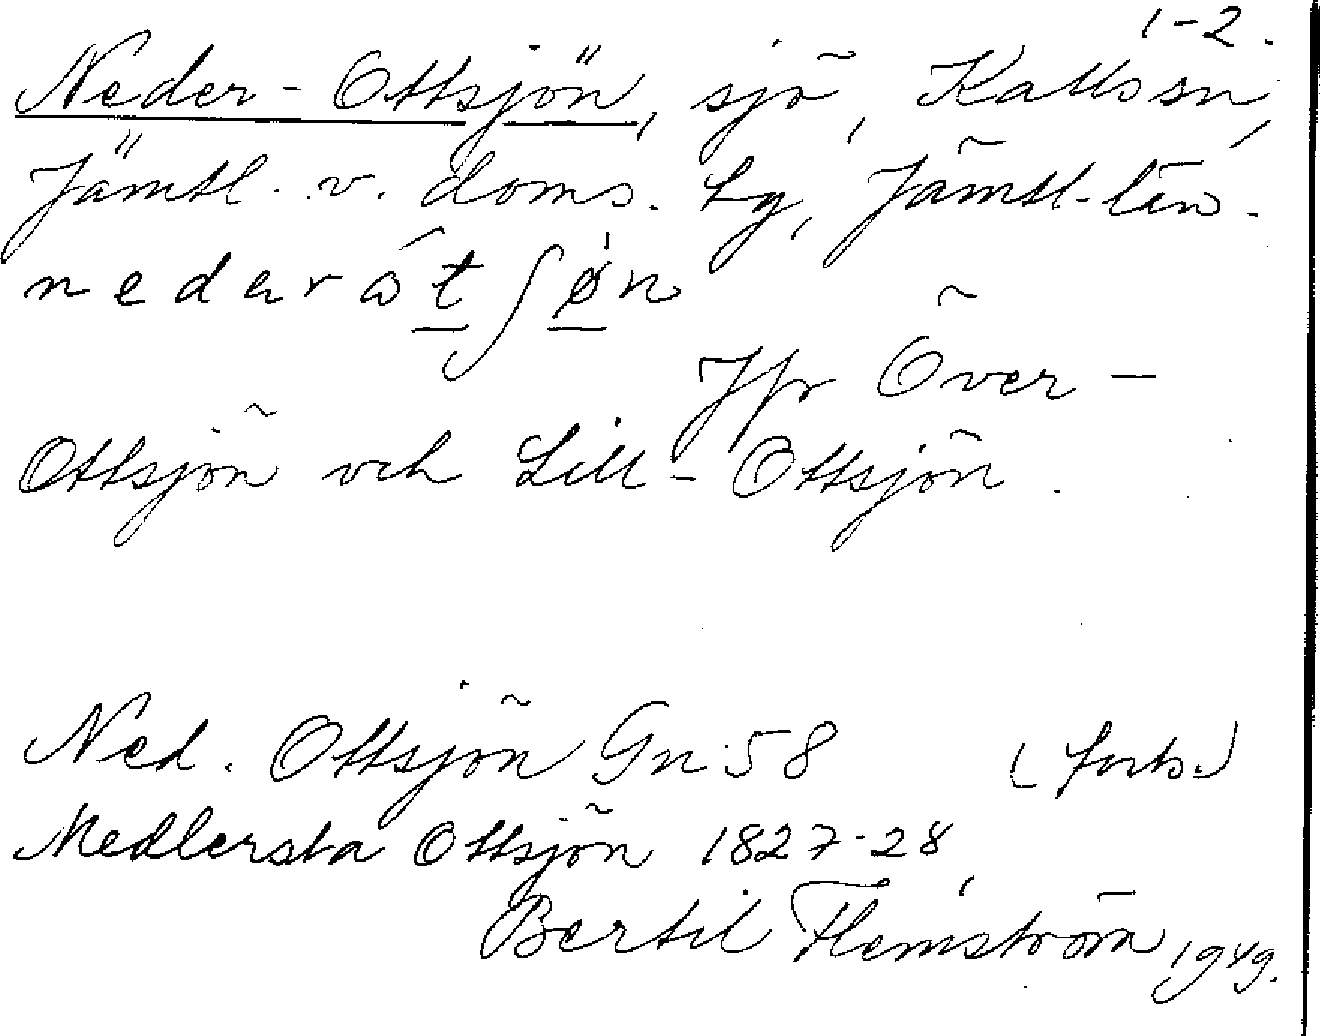 1-2.
Neder-Ottsjön, sjö, Kalls sn,
Jämtl. v. doms. Lg, Jämtl. län.
nedarótʃøn
Jfr Över-
Ottsjön och Lill-Ottsjön.
Ned. Ottsjön Gn 58 (forts.)
Medlersta Ottsjön 1827-28,
Bertil Flemström 1949.